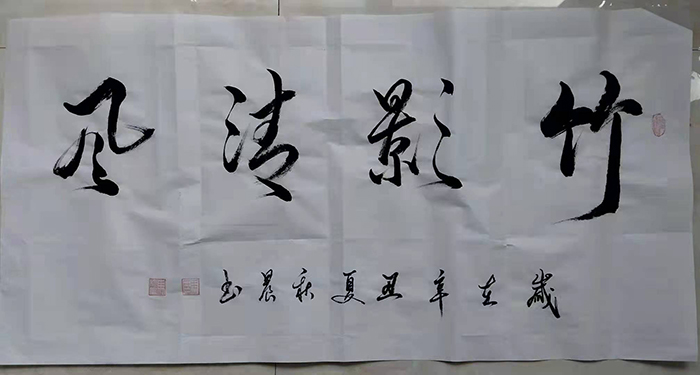 竹影清风
岁在辛丑夏秋晨书